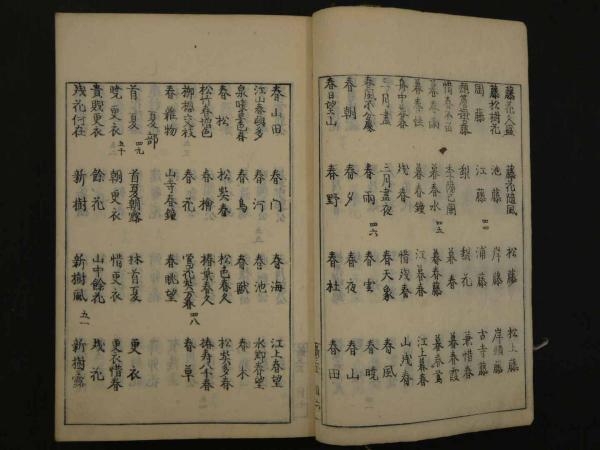 藤花久盛 藤花随風 松藤 松上藤
藤松樹花 池藤 岸藤 岸頭藤
関藤 江藤 浦藤 古寺藤
梨 梨花 兼惜春
惜春 暮春 暮春霞
暮春雨 暮春水 四五 暮春藤 暮春鶯
暮春鐘 江暮春 江上暮春
残春 惜残春 山残春
三月尽 三月尽夜 春天象 春風
春雨 四六 春雲 春暁
春朝 春夕 春夜 春山
春日望山 春野 春社 春田
春山田 春門 春海 江上春望
江山春興多 春河 春池 水郷春望
泉喧春色春 春鳥 春獣 春木
春松 松契春 松色春久 松契多春
松竹春増色 春檜 椿葉春久 椿寿八千春
柳桜交枝 春花 鶯花契万春 四八 春草
春雑物 山寺春鐘 春眺望
夏部 四九
首夏 首夏朝露 林首夏 更衣
暁更衣 五十 朝更衣 惜更衣 更衣惜春
貴賎更衣 餘花 山中餘花 残花
残花何在 新樹 新樹風 五一 新樹露